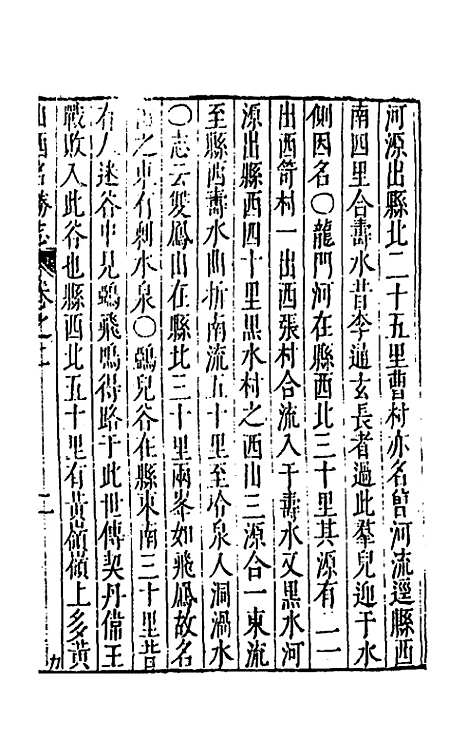 河源出縣北二十五里曹村亦名曹河流逕縣西
南四里合壽水昔李通玄長者過此羣兒迎于水
側因名〇龍門河在縣西北三十里其源有二一
出西笴村一出西張村合流入于壽水又黑水河
源出縣西四十里黑水村之西山三源合一東流
至縣西壽水曲折南流五十里至冷泉入洞渦水
〇志云雙鳳山在縣北三十里兩峯如飛鳳故名
之東有剌水泉〇鵶兒谷在縣東南三十里昔
有人迷谷中見鵶飛鳴得路于此世傳契丹偹王
戰敗入此谷也縣西北五十里有黃嶺嶺上多黃
山西名勝志 卷之二 九